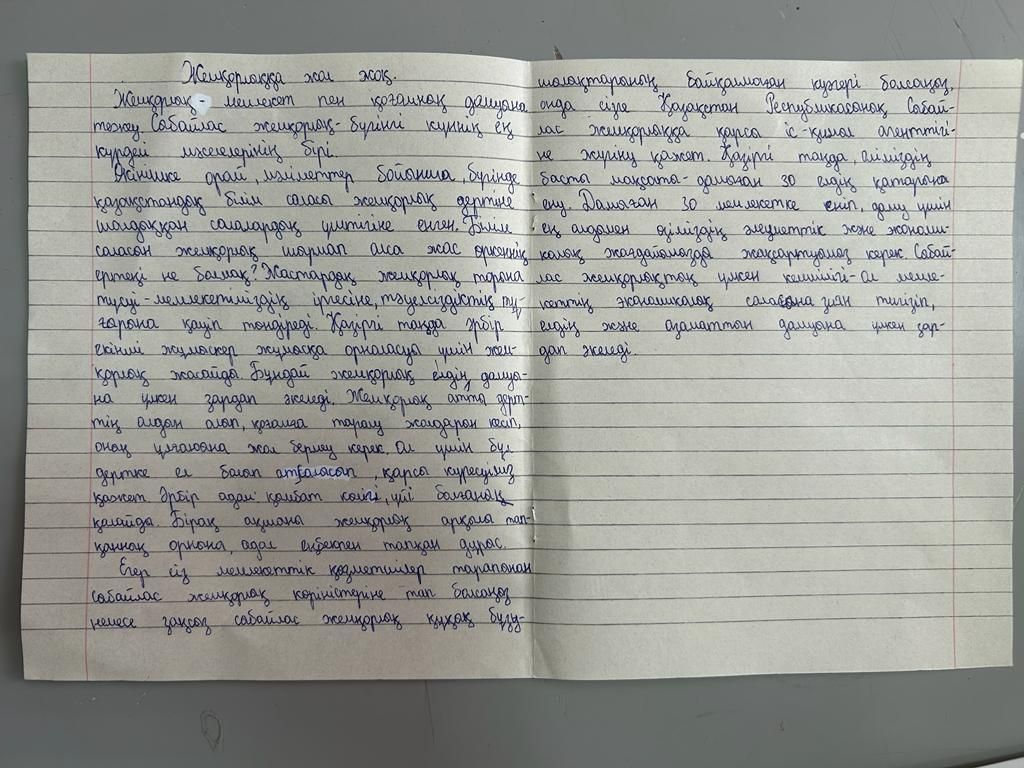 Жемқорлыққа жол жоқ.
Жемқорлық - мемлекет пен қоғамның дамуына
тежеу. Сыбайлас жемқорлық - бүгінгі күннің ең
күрделі мәселелерінің бірі.
Өкінішке орай, мәліметтер бойынша, бүгінде
қазақстандық білім саласы жемқорлық дертіне
шалдыққан салалардың үштігіне енген. Білім
саласын жемқорлық шырмап алса жас өркеннің
ертеңі не болмақ? Жастардың жемқорлық торына
түсуі - мемлекетіміздің іргесіне, тәуелсіздіктің тұ-
ғырына қауіп төндіреді. Қазіргі таңда әрбір
екінші жұмыскер жұмысқа орналасуы үшін жем-
қорлық жасайды. Бұндай жемқорлық елдің дамуы-
на үлкен зардап әкеледі. Жемқорлық атты дерт-
тің алдын алып, қоғамға таралу жолдарын кесіп,
оның ұлғаюына жол бермеу керек. Ол үшін бұл
дертке ел болып атсалысып, қарсы күресуіміз
қажет. Әрбір адам қымбат көлігі, үйі болғанын
қалайды. Бірақ ақшаны жемқорлық арқылы тап-
қанның орнына, адал еңбекпен тапқан дұрыс.
Егер сіз мемлекеттік қызметшілер тарапынан
сыбайлас жемқорлық көріністеріне тап болсаңыз
немесе заңсыз сыбайлас жемқорлық құқық бұзу-
шылықтарының байқалмаған күәгері болсаңыз,
онда сізге Қазақстан Республикасының Сыбай-
лас жемқорлыққа қарсы іс-қимыл агенттігі-
не жүгіну қажет. Қазіргі таңда, еліміздің
басты мақсаты - дамыған 30 елдің қатарына
ену. Дамыған 30 мемлекетке еніп, даму үшін
ең алдымен еліміздің әлеуметтік және экономи-
калық жағдайымызды жақсартуымыз керек. Сыбай-
лас жемқорлықтың үлкен кемшілігі - ол мемле-
кеттің экономикалық саласына зиян тигізіп,
елдің және азаматтың дамуына үлкен зар-
дап әкеледі.